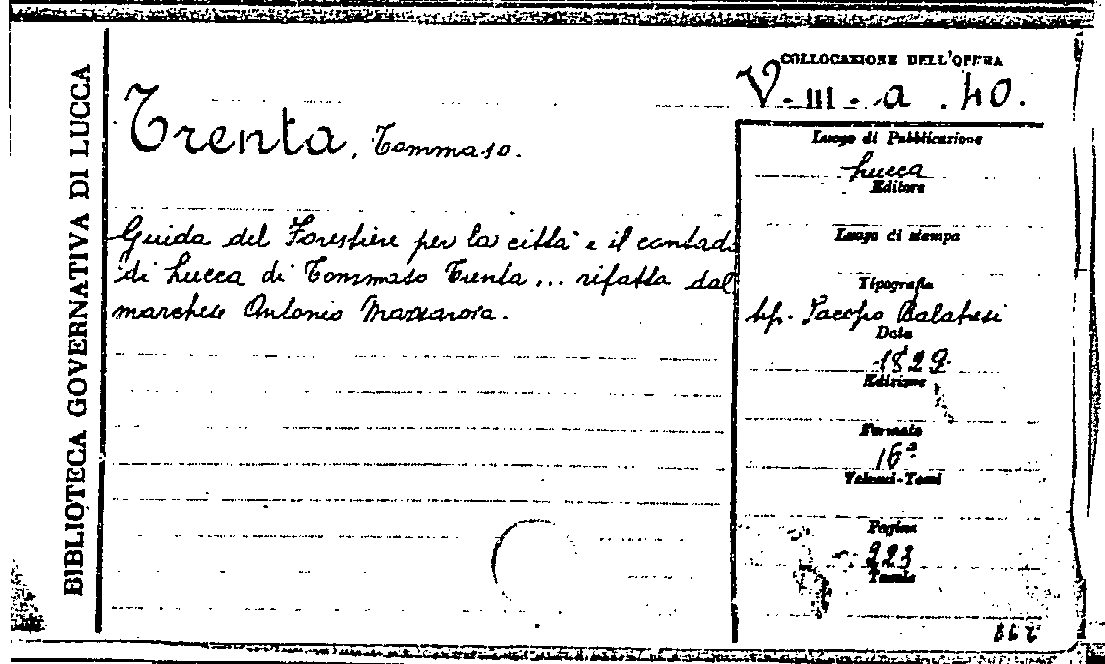 BIBLIOTECA GOVERNATIVA DI LUCCA
COLLOCAZIONE DELL'OPERA
V. III. a. 40.
Trenta, Tommaso.
Guida del Forestiere per la città e il contado
di Lucca di Tommaso Trenta... rifatta dal
marchese Antonio Mazzarosa.
Luogo di Pubblicazione
Lucca
Editore
Luogo di stampa
Tipografia
tip. Jacopo Balatresi
Data
1829
Edizione
Formato
16°
Volumi-Tomi
Pagine
223
Tavole